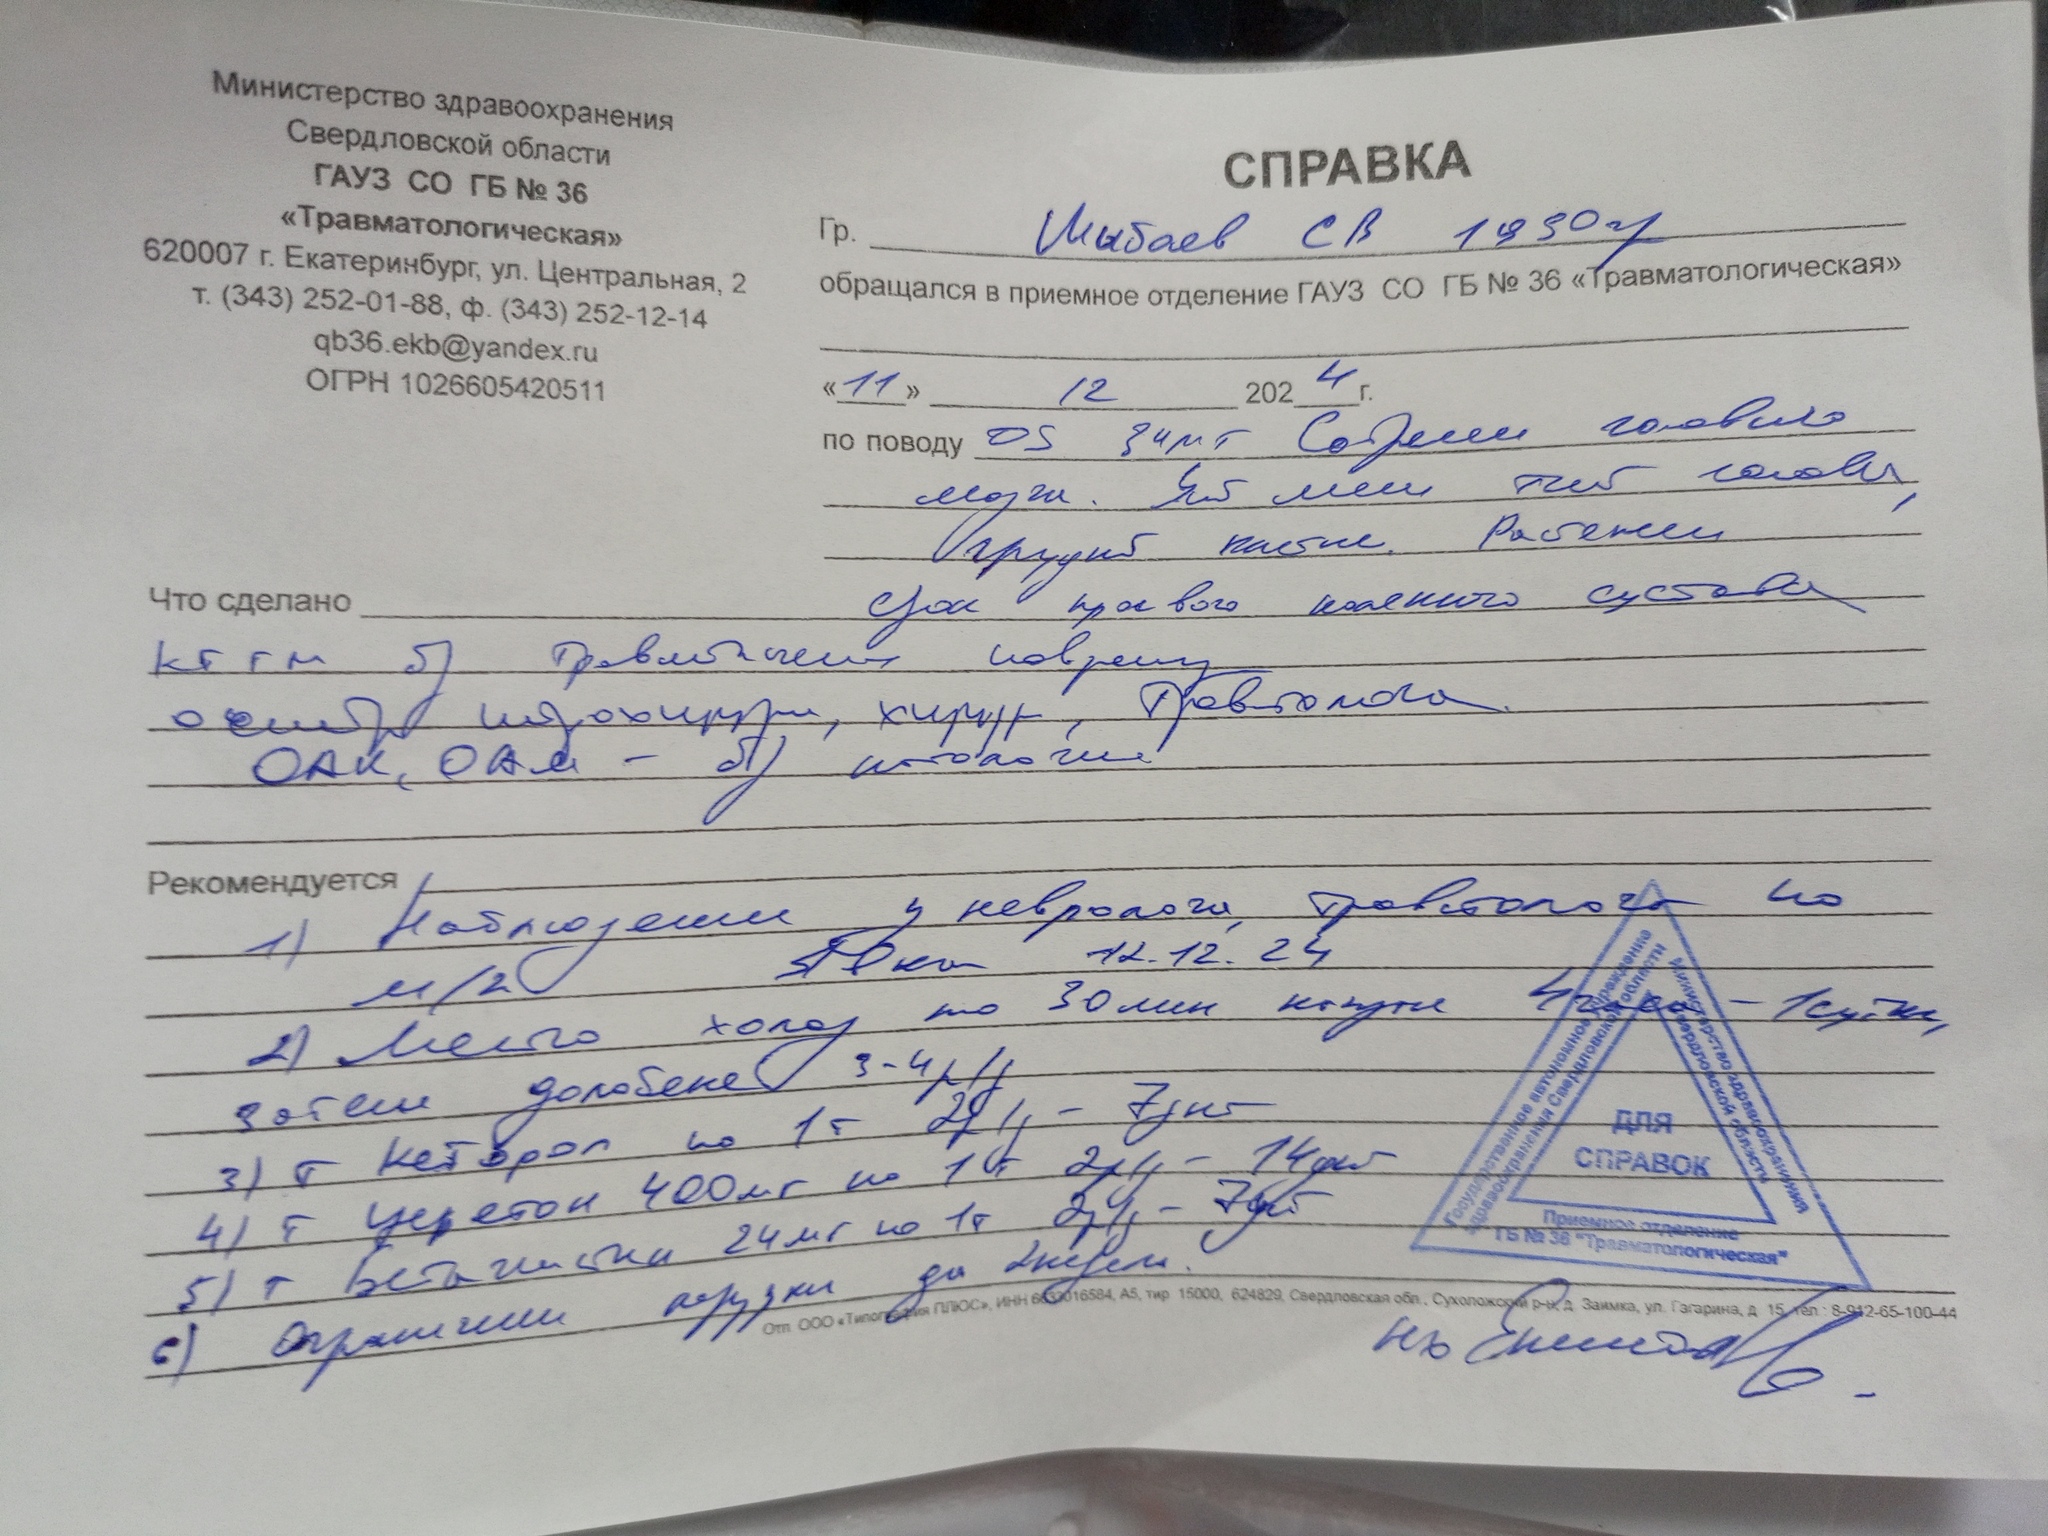 Министерство здравоохранения
Свердловской области
ГАУЗ СО ГБ № 36
«Травматологическая»
620007 г. Екатеринбург, ул. Центральная, 2
т. (343) 252-01-88, ф. (343) 252-12-14
qb36.ekb@yandex.ru
ОГРН 1026605420511
СПРАВКА
Гр. СВ
обращался в приемное отделение ГАУЗ СО ГБ № 36 «Травматологическая»
«11» 12 2024 г.
по поводу DS ЗЧМТ головного
мозга. головы,
клетки.
Что сделано
правого коленного сустава
КТ ГМ б/
осмотр нейрохирурга, хирург, травматолога.
ОАК, ОАМ – б/ патологии
Рекомендуется
1) Наблюдение у невролога, травматолога по
м/ж явка 12.12.24
2) Местно холод по 30 мин 4 часа – 1 сутки,
затем долобене 3-4 р/д
3) т Кеторол по 1т 2р/д – 7 дней
4) т Церетон 400мг по 1т 2р/д – 14 дней
5) т Бетагистин 24мг по 1т 2р/д – 7 дней
6) Ограничение нагрузки до 2 недели.
нх
Государственное автономное учреждение
здравоохранения Свердловской области
Министерство здравоохранения
Свердловской области
ДЛЯ
СПРАВОК
Приемное отделение
ГБ № 36 "Травматологическая"
Отп. ООО «Типография ПЛЮС», ИНН 6633016584, А5, тир. 15000, 624829, Свердловская обл., Сухоложский р-н, д. Заимка, ул. Гагарина, д. 15, тел.: 8-912-65-100-44